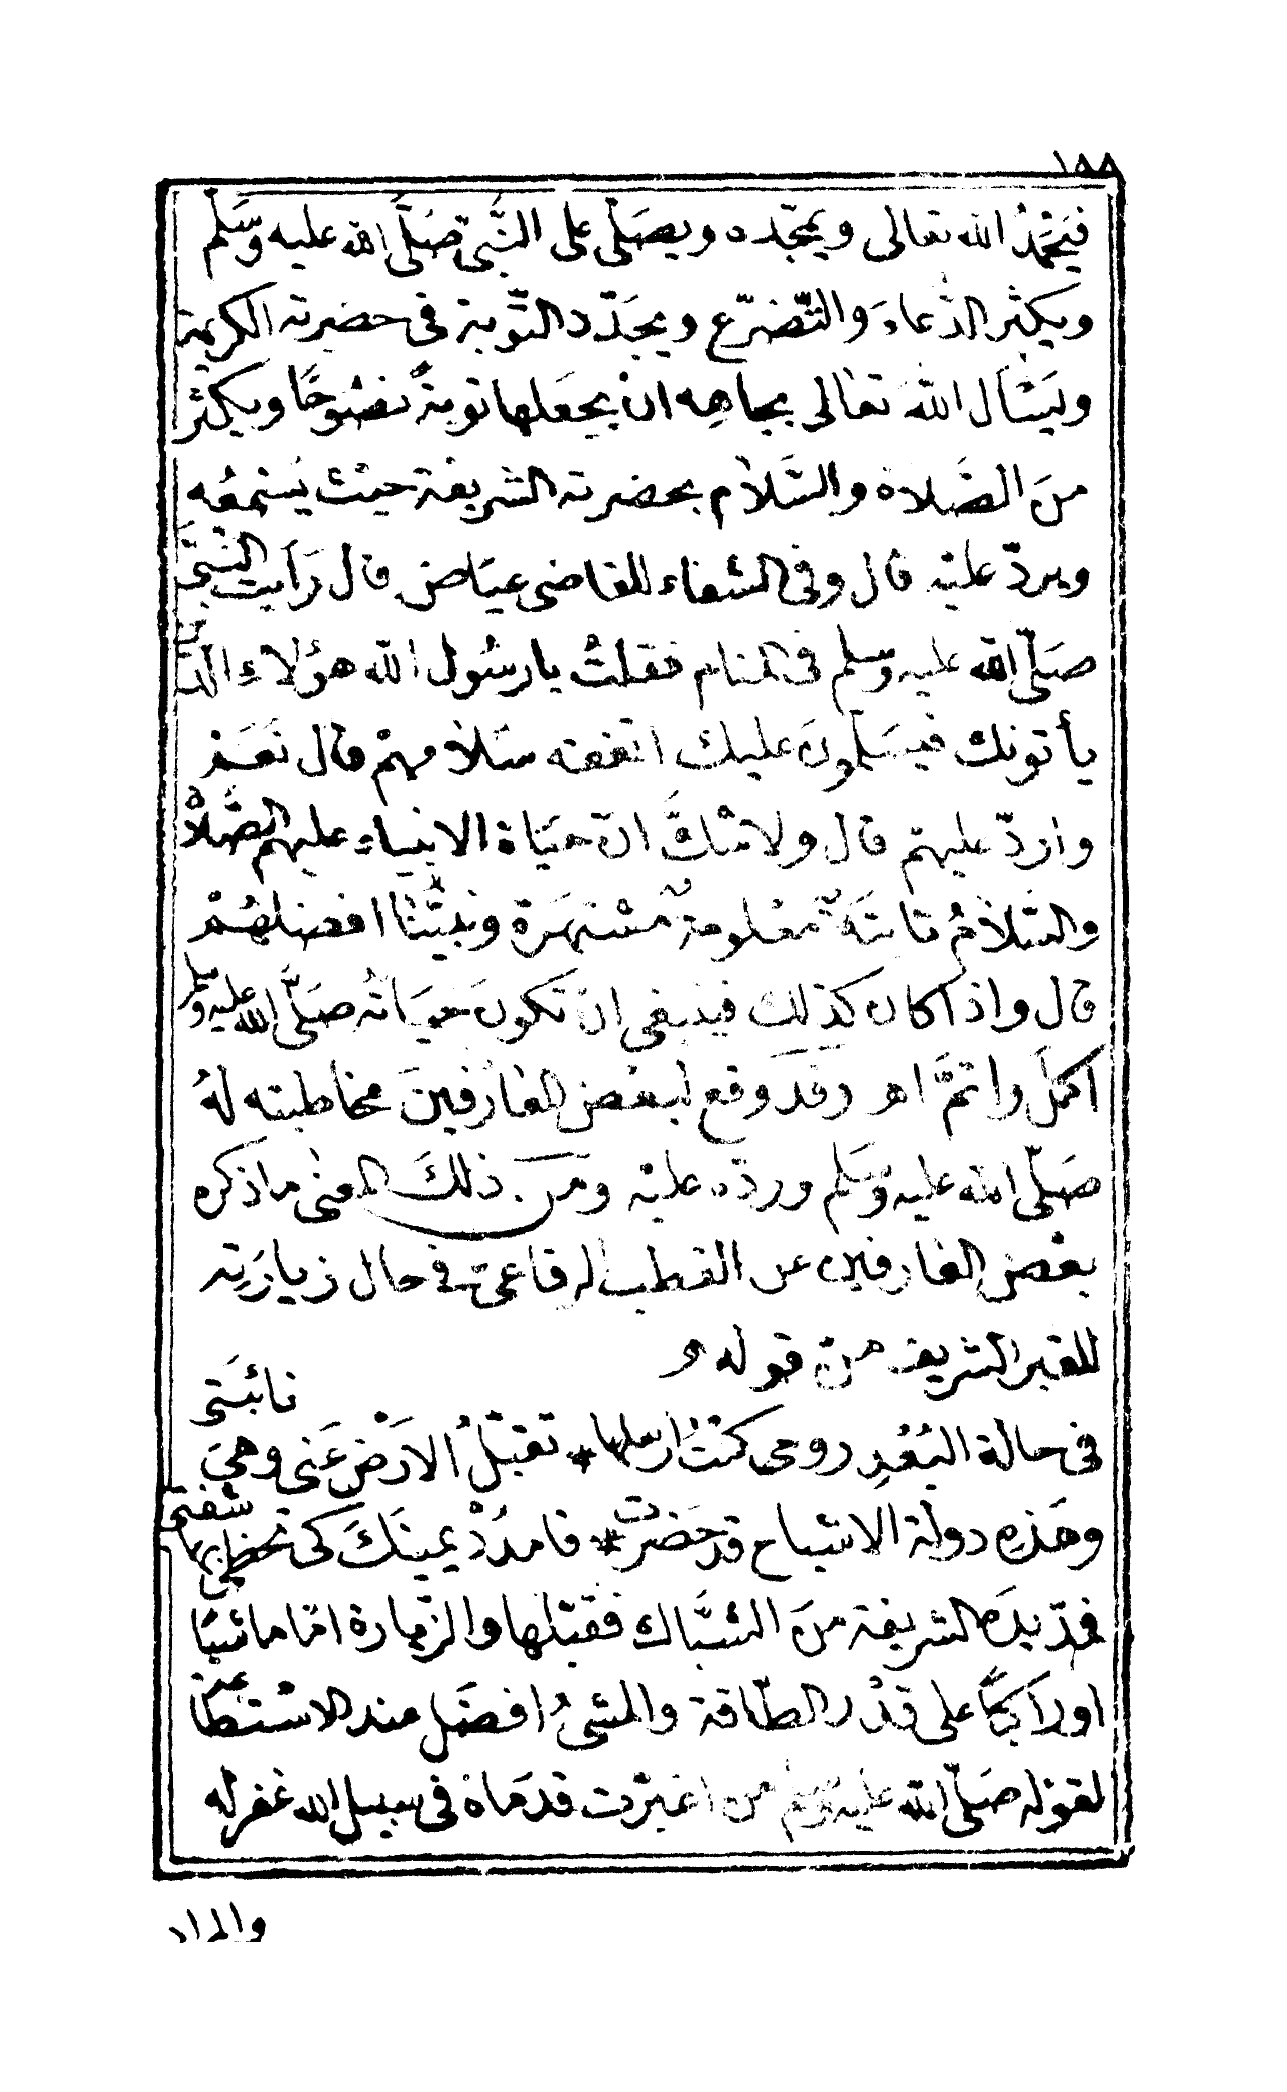 ١٨٨
فيَحْمَدُ الله تعالى ويمجّده ويصَلّى على النَّبىّ صَلَّى الله عليه وَسَّلم
ويكثر الدّعاءَ والتّضرّع ويجَدّد التَّوبة فى حضرته الكريمة
ويَسْأل اللهَ تعَالى بجاهِه انْ يجعَلها توبةً نصُوحًا ويكثر
منَ الصَّلاة والسَّلاَم بحضرته الشريفة حيْث يَسْمعُه
ويردّ عليْه قال وفى الشفاء للقاضى عيَاض قال رَأيت النَّبىَّ
صَلّى الله عليه وسلم فى المنام فقلتُ يارسُول الله هؤلاءِ الذين
يأتونك فيسَلّمونَ عليك اتفقه سَلاَمهمْ قال نَعَمْ
واردّ عليهمْ قال ولاشكَّ انّ حيَاة الانبياء عليهم الصَّلاة
والسَّلاَمُ ثابتَةٌ معْلومةٌ مسْتمرَة ونبيُّنَا افضلهُمْ
قال واذا كان كذلك فينبغى انْ تكونَ حيَاتُه صَلَّى الله عليه وسلم
اكملَ واتمَّ اهـ وقَدْ وقع لبعْض العَارفينَ مخاطبته لهُ
صَلّى الله عليه وَسَلم وردّه عليْه ومَن ذلكَ المعنىٰ ماذكره
بعْض العَارفين عن القطب الرفاعىّ فى حال زيارَته
للقبر الشريف منْ قوله
فى حالة البُعْدِ روحى كنْتُ ارسلها * تقبّلُ الارَضْ عَنى وهىَ نائبَتى
وهَذهِ دولة الاشباح قد حَضرت * فامدُدْ يمينَكَ كى تحظى بها شفتى
فمدّ يدَه الشريفة منَ الشبَّاك فقبّلها والزّيارة امّا ماشيًا
اورَاكبًا على قدْر الطّاقة والمشىُ افضَل عند الاسْتطاعة
لقوْله صَلّى الله عليه وَسَلم من اغبرّت قدمَاهْ فى سبيل الله غفر له
والمراد